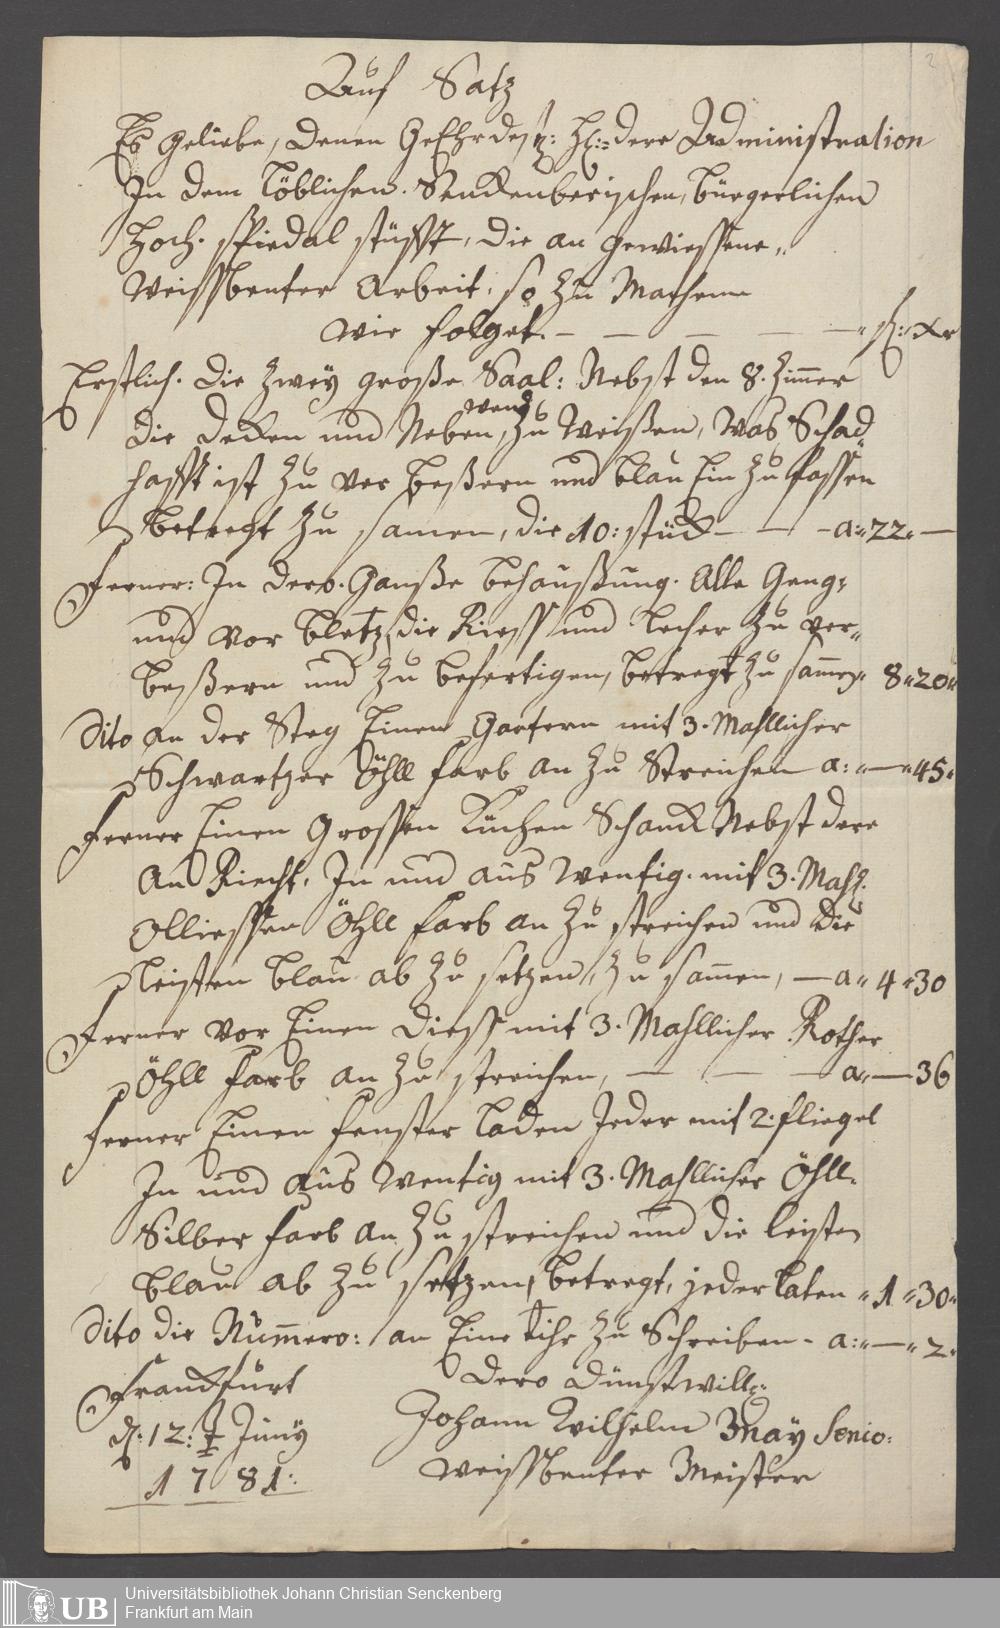 2
Auf Satz
Es geliebe, denen GeEhrdesten: H: dere Administration
In dem löblichen. Senckenberischen, bürgerlichen
Hoch. Spiedal stüfft, die an gewiessene„
Weissbenter Arbeit, so zu Machenn
wie folget. — — — — — fl: xr
Erstlich. die zweÿ große Saal: Nebst den 8. Zimmer
wend
die decken und Neben, zu Weißen, was Schad„
hafft ist zu ver beßern und blau Ein zu fassen
betregt zu samen, die 10: stück — — a:„22„—
Ferner: In dero. Ganße behaußung. Alle Geng„
und vor bletz, die Riess und Lecher zu ver„
beßern und zu befertigen, betregt zu samen„ 8„20„
dito an der Steg Einen Gaetern mit 3. Mahllicher
Schwartzer Öhll farb an zu Streichen a:„—„45„
ferner Einen Grossen Küchen Schanck Nebst dere
An Riecht. In und aus wentig. mit 3. Mahl.
Olliessen Öhll farb an zu streichen und die
Leisten blau ab zu setzen, zu samen, —a„ 4„30
Ferner vor Einen Diess mit 3. Mahllicher Rother
Öhll farb an zu streichen, — — — a„—36
ferner Einen fenster laden Jeder mit 2: fliegel
In und aus wentig mit 3. Mahllicher Öhll„
Silber farb an zu streichen und die leisten
blau ab zu setzen, betregt, jeder laten „1„30„
dito die Nummero: an Eine tihr zu Schreiben - a:„—„2„
Franckfurt
d: 12: Junÿ
1781:
Dero dünstwill:
Johann Wilhelm Maÿ Senio:
Weissbenter Meister
UB
Universitätsbibliothek Johann Christian Senckenberg
Frankfurt am Main